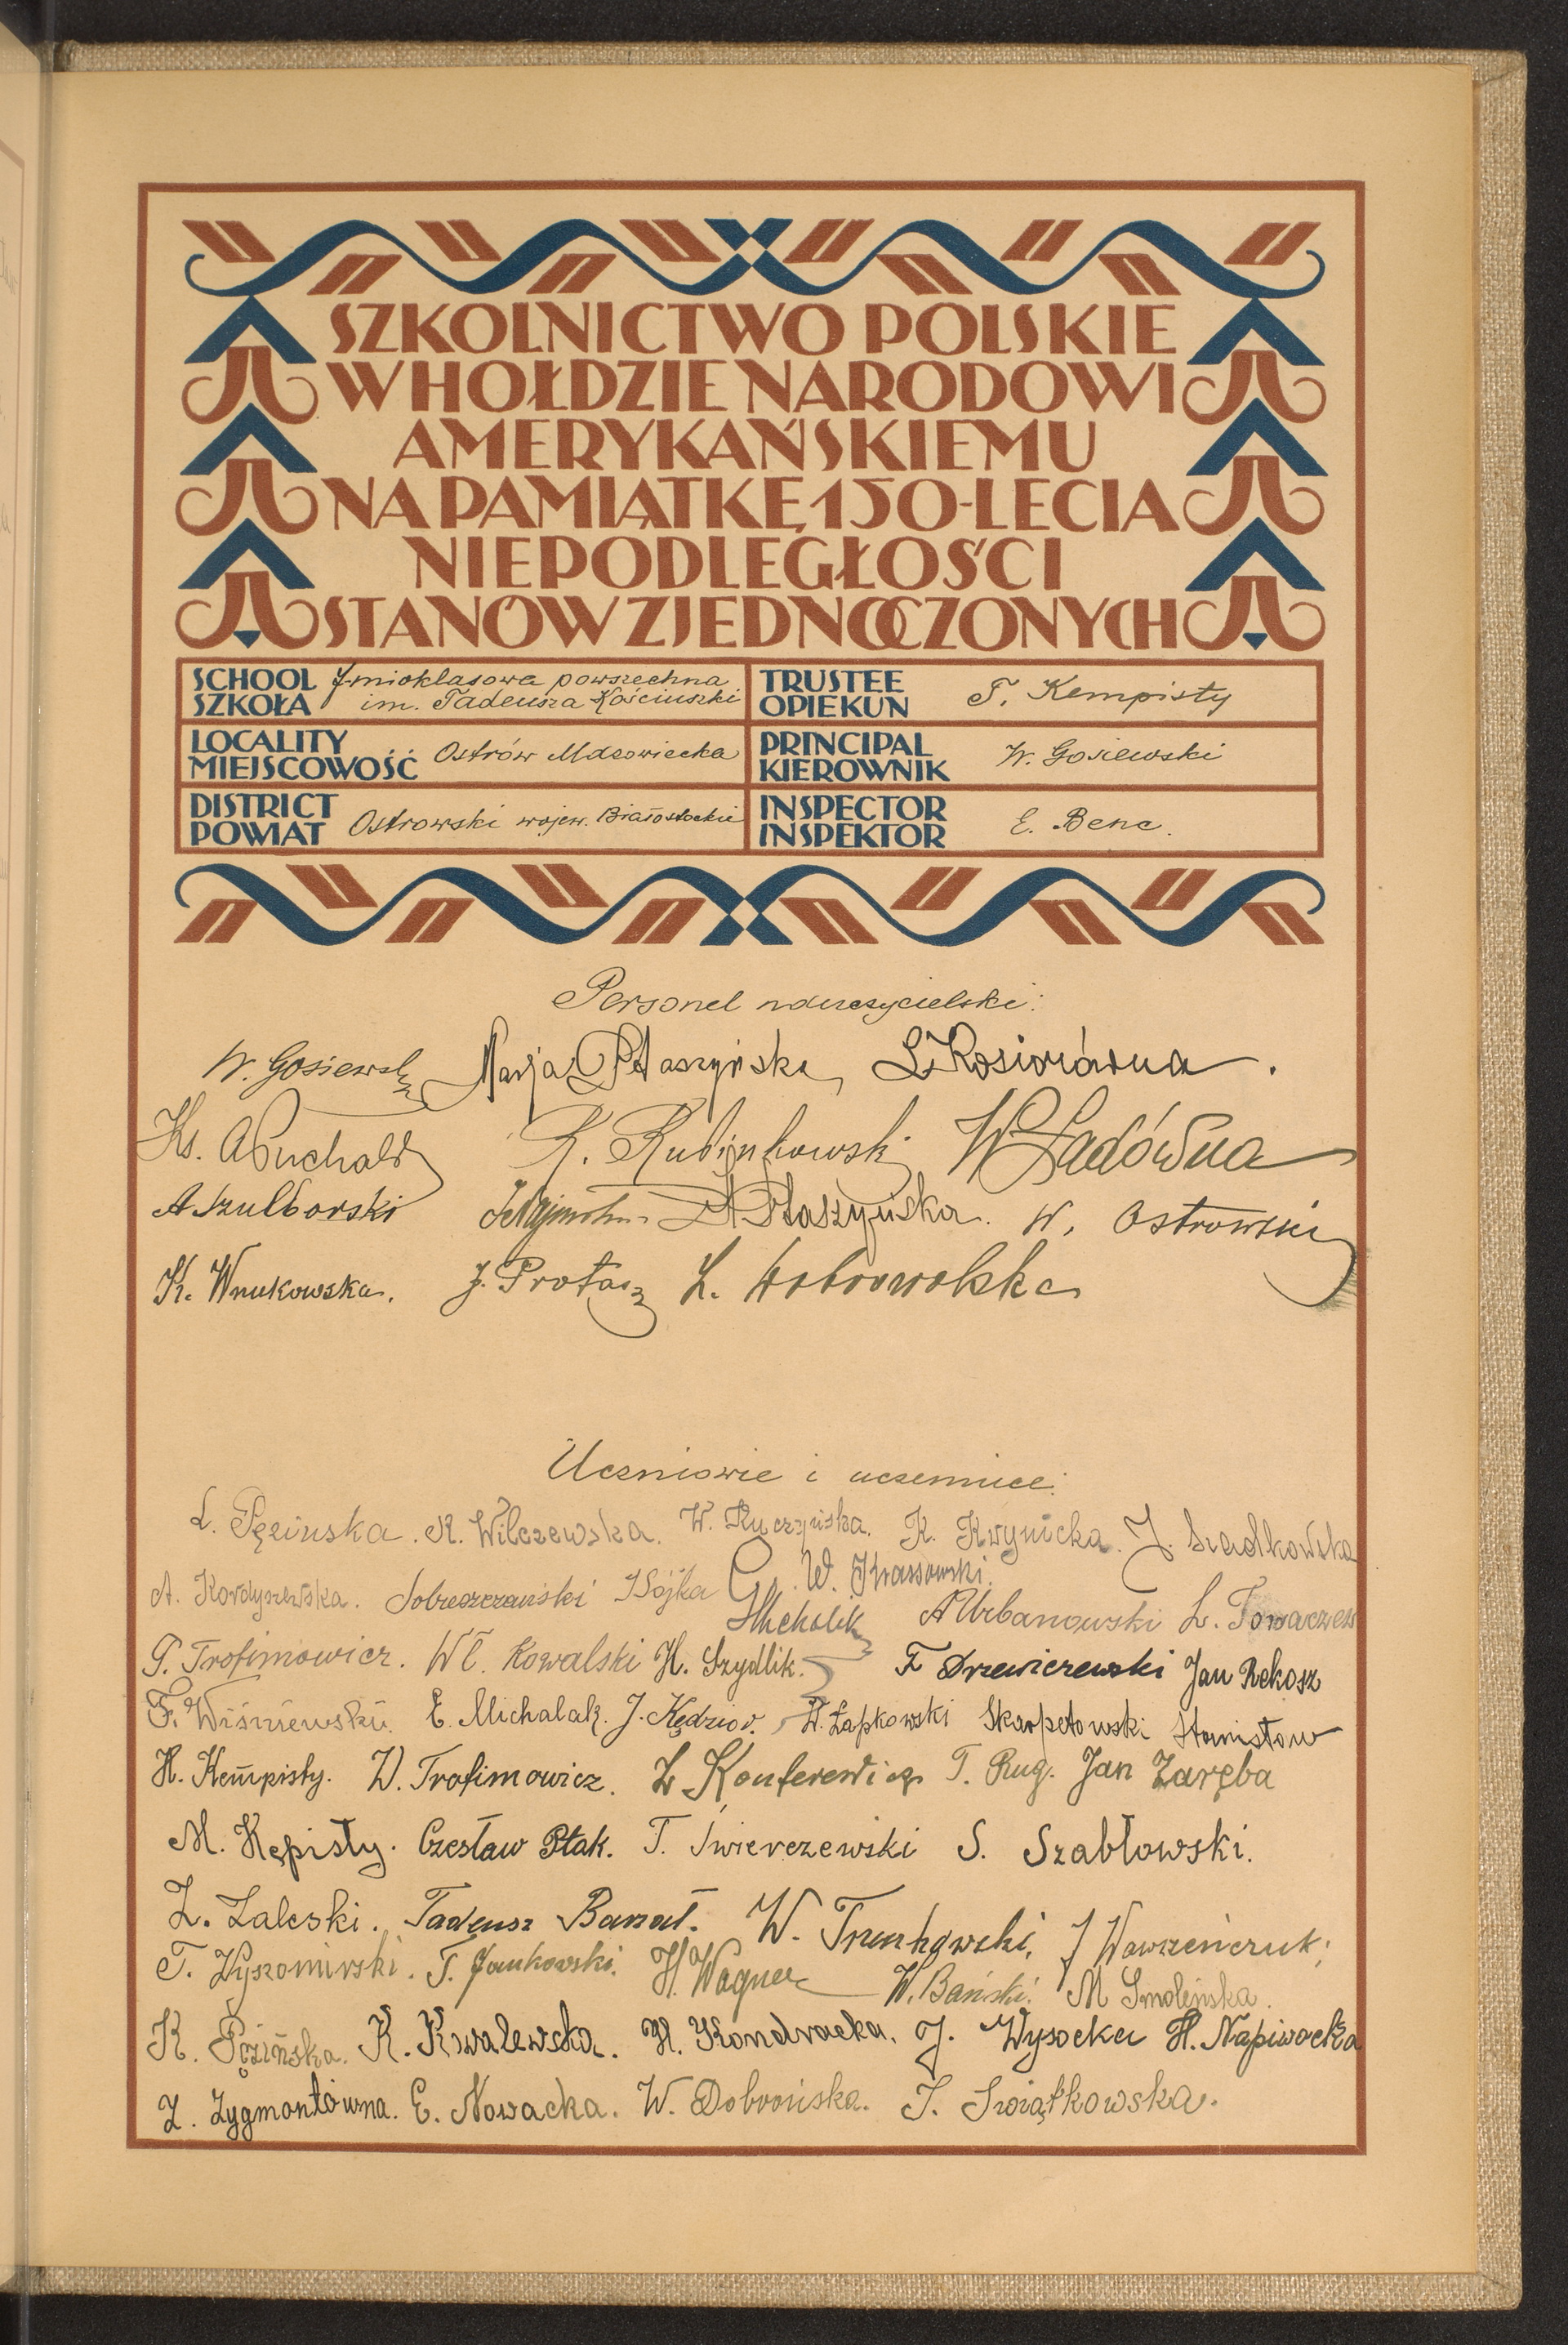 SZKOLNICTWO POLSKIE
W HOŁDZIE NARODOWI
AMERYKAŃSKIEMU
NA PAMIĄTKĘ 150-LECIA
NIEPODLEGŁOŚCI
STANÓW ZJEDNOCZONYCH
SCHOOL SZKOŁA 7-mioklasowa powszechna im. Tadeusza Kościuszki
TRUSTEE OPIEKUN T. Kempisty
LOCALITY MIEJSCOWOŚĆ Ostrów Mazowiecka
PRINCIPAL KIEROWNIK W. Gosiewski
DISTRICT POWIAT Ostrowski wojew. Białostockie
INSPECTOR INSPEKTOR E. Benc.
Personel nauczycielski:
W. Gosiewski Marja Ptaszyńska, L. Kosiorówna.
Ks. A Puchalski R. Rubinkowski W Sadówna
A Szulborski A Staszyńska. W. Ostrowski
K. Wnukowska. J. Protasz L. Dobrowolska
Uczniowie i uczennice:
L. Pęzińska. R. Wilczewska. W. Ruczyńska. K. Krynicka. J. Siadkowska
A. Kordyszewska. Dobruszczański Bójka W. Krassowski.
A Urbanowski
P. Trofimowicz. Wł. Kowalski H. Szydlik. F Drzewiczewski Jan Rekosz
F. Wiśniewski E. Michalak. J. Kędzior. W. Łapkowski Skarpetowski Stanisław
H. Kempisty. W. Trofimowicz. Z Konferewicz T. Rug. Jan Zaręba
M. Kępisty. Czesław Ptak. T. Świerczewski S. Szabłowski.
Z. Zaleski. Tadeusz Banat. W. Trunkowski, J Wawrzeńczuk;
T. Wyszomirski. T. Jankowski. H. Wagner W. Bański. M Smoleńska.
K. Pęzińska. K. Kwalewska. H. Kondracka. J. Wysocka H. Napiwocka
Z. Zygmontówna. E. Nowacka. W. Dobrońska. J. Świątkowska.